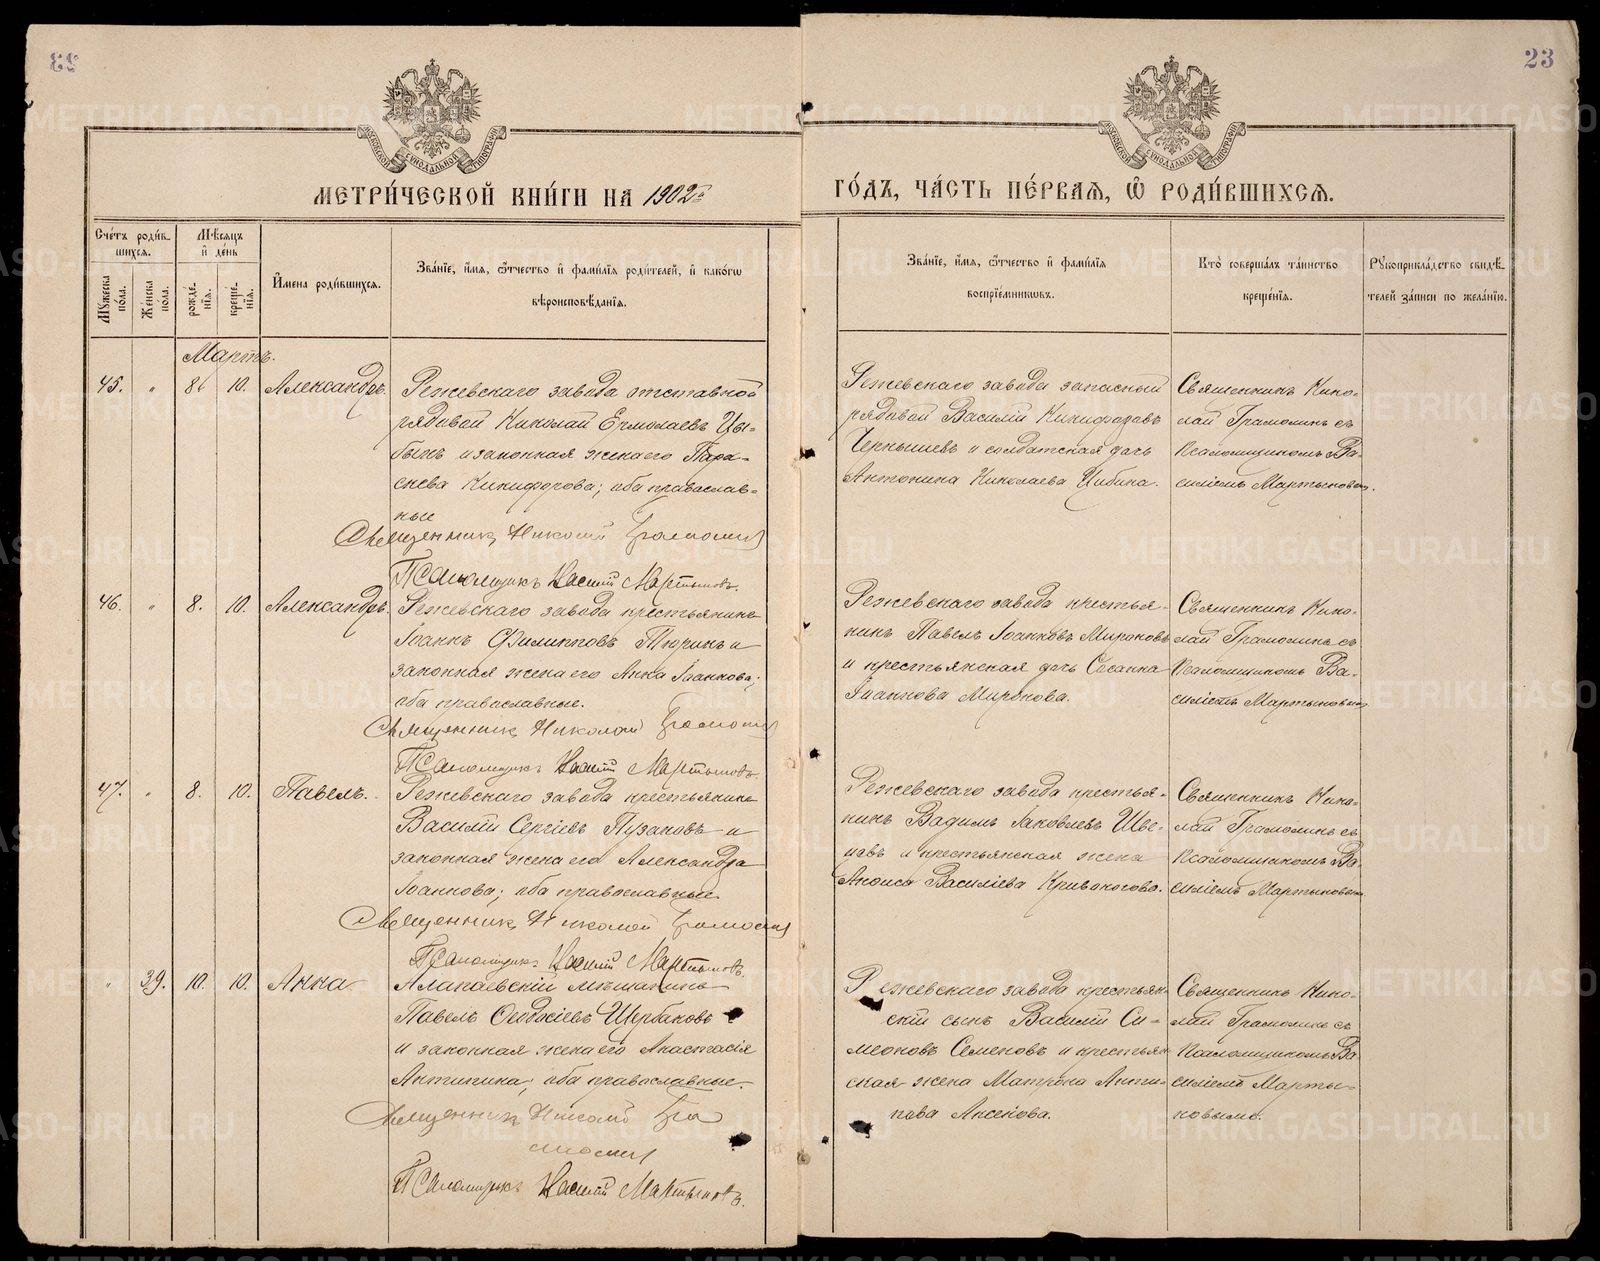 23
МЕТРИ́ЧЕСКОЙ КНИ́ГИ НА 1902й
ГО́ДЪ, ЧА́СТЬ ПЕ́РВАЯ, Ѿ РОДИ́ВШИХСЯ.
МОСКОВСКОЙ СѴНОДАЛЬНОЙ ТИПОГРАФІИ
МОСКОВСКОЙ СѴНОДАЛЬНОЙ ТИПОГРАФІИ
Сче́тъ роди́в-
шихся.
Мꙋжеска по́ла.
Же́нска по́ла.
Мѣ́сяцъ
и҆ де́нь
рожде́-
нїя.
креще́-
нїя.
И҆мена роди́вшихся.
Зва́нїе, и҆́мя, ѻ҆́тчество и҆ фами́лїя роди́телей, и҆ како́гѡ
вѣроисповѣ́данїя.
Зва́нїе, и҆́мя, ѻ҆́тчество и҆ фами́лїя
воспрїе́мникѡвъ.
Кто̀ соверша́лъ та́инство
креще́нїя.
Рꙋкоприкла́дство свидѣ́-
телей за́писи по жела́нїю.
Мартъ.
45. " 8. 10. Александръ.
Режевскаго завода отставной
рядовой Николай Ермолаевъ Цы-
бинъ и законная жена его Пара-
скева Никифорова; оба православ-
ные
Священникъ Николай Грамолин
Псаломщикъ Василий Мартыновъ.
Режевскаго завода запасный
рядовой Василий Никифоровъ
Чернышевъ и солдатская дочь
Антонина Николаева Цибина.
Священникъ Нико-
лай Грамолинъ съ
псаломщикомъ Ва-
силіемъ Мартыновым.
46. " 8. 10. Александръ.
Режевскаго завода крестьянинъ
Іоаннъ Филипповъ Тюринъ и
законная жена его Анна Іоаннова;
оба православные.
Священникъ Николай Грамолин
Псаломщикъ Василий Мартыновъ.
Режевскаго завода крестья-
нинъ Павелъ Іоанновъ Мироновъ
и крестьянская дочь Сусанна
Іоаннова Миронова.
Священникъ Нико-
лай Грамолинъ съ
псаломщикомъ Ва-
силіемъ Мартыновым
47. " 8. 10. Павелъ.
Режевскаго завода крестьянинъ
Василий Сергіевъ Пузановъ и
законная жена его Александра
Іоаннова; оба православные
Священникъ Николай Грамолин
Псаломщикъ Василий Мартыновъ.
Режевскаго завода крестья-
нинъ Вадимъ Іаковлевъ Шве-
цовъ и крестьянская жена
Аноиса Василіева Кривоногова.
Священникъ Нико-
лай Грамолинъ съ
псаломщикомъ Ва-
силіемъ Мартыновым
" 39. 10. 10. Анна
Алапаевскій мѣщанинъ
Павелъ Ѳеодосіевъ Щербаковъ
и законная жена его Анастасія
Антипина; оба православные.
Священникъ Николай Гра
молин
Псаломщикъ Василий Мартыновъ.
Режевскаго завода крестьян-
скій сынъ Василий Си-
меоновъ Семеновъ и крестьян
ская жена Матрона Анти-
пова Аксенова.
Священникъ Нико-
лай Грамолинъ съ
псаломщикомъ Ва-
силіемъ Марты-
новымъ.
METRIKI.GASO-URAL.RU